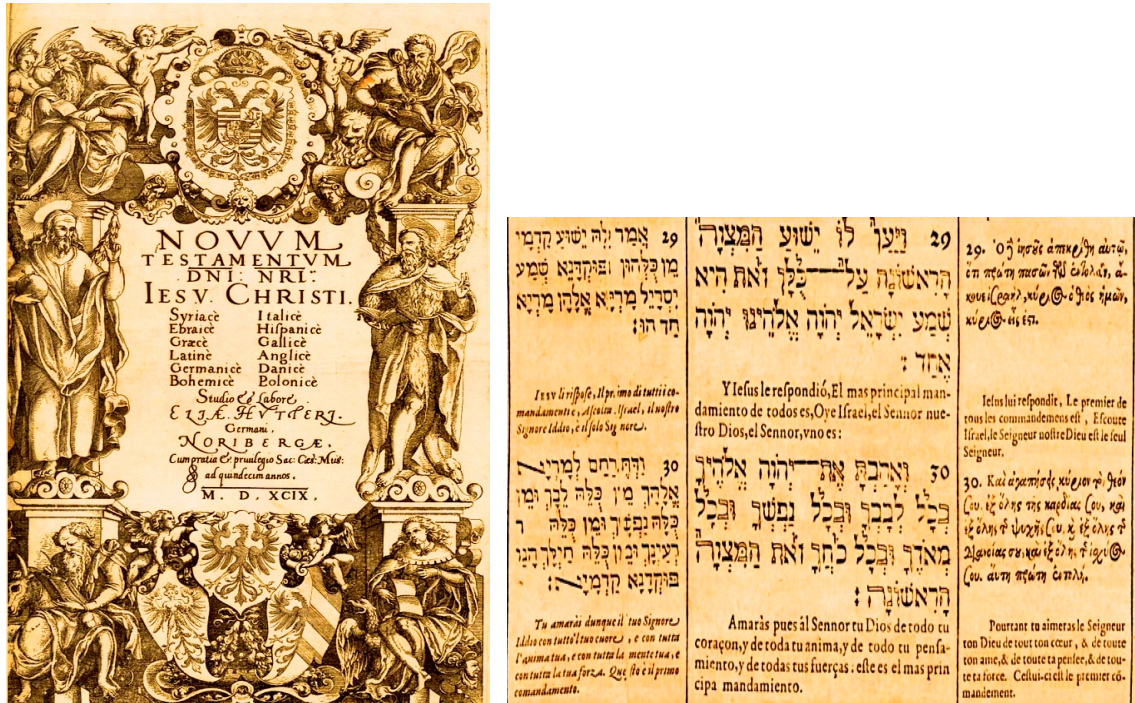 NOVVM
TESTAMENTVM
DNI: NRI:
IESV. CHRISTI.
Syriacè Italicè
Ebraicè Hiſpanicè
Græcè Gallicè
Latinè Anglicè
Germanicè Danicè
Bohemicè Polonicè
Studio & Labore
ELIÆ HVTTERI.
Germani.
NORIBERGÆ.
Cum gratia & priuilegio Sac: Cæs: Mai:
ad quindecim annos.
M. D. XCIX.
29 אמר לה ישוע קדמי
מן כלהון פוקדנא שמע
יסריל מריא אלהן מריא
חד הו:
Iesv li rispose, Il primo di tutti i co-
mandamenti è, Aſcolta Israel, il nostro
Signore Iddio, è il ſolo Signore.
30 ודתרחם למריא
אלהך מן כלה לבך ומן
כלה נפשך ומן כלה
רעינך ומן כלה חילך הנו
פוקדנא קדמיא:
Tu amarài dunque il tuo Signore
Iddio con tutto'l tuo cuore, e con tutta
l'anima tua, e con tutta la mente tua, e
con tutta la tua forza. Questo è il primo
comandamento.
29 וַיַּעַן לוֹ יֵשׁוּעַ הַמִּצְוָה
הָרִאשׁוֹנָה עַל־כֻּלָּן זֹאת הִיא
שְׁמַע יִשְׂרָאֵל יְהוָֹה אֱלֹהֵינוּ יְהוָֹה
אֶחָד :
Y Ieſus le reſpondió, El mas principal man-
damiento de todos es, Oye Iſrael, el Sennor nue-
ſtro Dios, el Sennor, vno es:
30 וְאָהַבְתָּ אֶת־יְהוָֹה אֱלֹהֶיךָ
בְּכָל לְבָבְךָ וּבְכָל נַפְשְׁךָ וּבְכָל
מְאֹדֶךָ וּבְכָל כֹּחֲךָ זֹאת הַמִּצְוָה
הָרִאשׁוֹנָה :
Amaràs pues àl Sennor tu Dios de todo tu
coraçon, y de toda tu anima, y de todo tu penſa-
miento, y de todas tus fuerças. eſte es el mas prin
cipa mandamiento.
29. Ὁ δὲ ἰησοῦς ἀπεκρίθη αὐτῷ,
ὅτι πρώτη πασῶν τῶν ἐντολῶν, ἄ-
κουε ἰσραὴλ, κύριος ὁ θεὸς ἡμῶν,
κύριος εἷς ἐστι.
Ieſus lui reſpondit, Le premier de
tous les commandemens eſt, Eſcoute
Iſrael, le Seigneur noſtre Dieu eſt le ſeul
Seigneur.
30. Καὶ ἀγαπήσεις κύριον τὸν θεόν
σου ἐξ ὅλης τῆς καρδίας σου, καὶ
ἐξ ὅλης τῆς ψυχῆς σου, καὶ ἐξ ὅλης τῆς
διανοίας σου, καὶ ἐξ ὅλης τῆς ἰσχύος
σου. αὕτη πρώτη ἐντολή.
Pourtant tu aimeras le Seigneur
ton Dieu de tout ton cœur, & de toute
ton ame, & de toute ta penſee, & de tou-
te ta force. Ceſtui-ci eſt le premier cõ-
mandement.